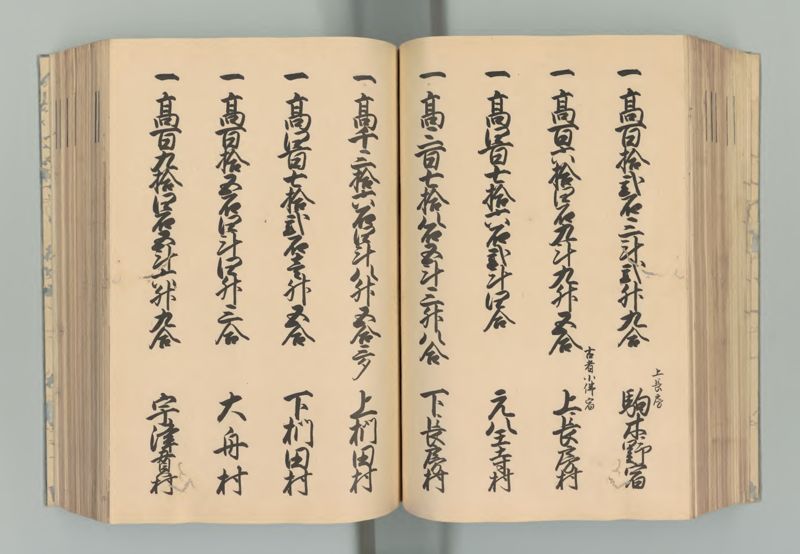 一 高百拾弐石三斗弐升九合
上長房
駒木野宿
一 高百六拾四石九斗九升五合
古者小仏宿
上長房村
一 高四百七拾六石弐斗四合
元八王子村
一 高三百七拾八石五斗三升八合
下長房村
一 高千三拾六石四斗八升五合三勺
上椚田村
一 高四百七拾弐石壱升五合
下椚田村
一 高百拾五石四斗四升三合
大舟村
一 高百九拾四石五斗六升九合
宇津貫村